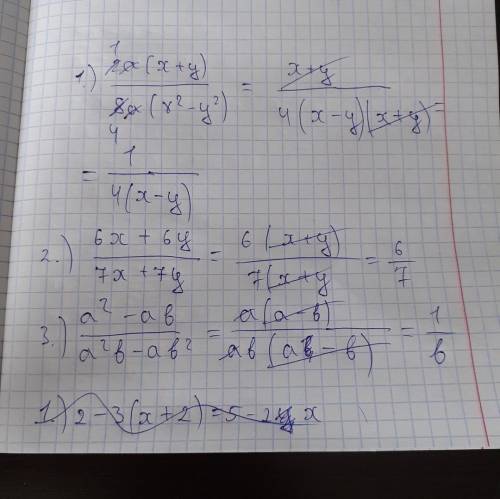 1.) 2a(x+y) / 8a(x²-y²) = x+y / 4(x-y)(x+y) =
1
4
= 1 / 4(x-y)
2.) 6x+6y / 7x+7y = 6(x+y) / 7(x+y = 6/7
3.) a²-ab / a²b-ab² = a(a-b) / ab(a-b) = 1/b
1.) 2-3(x+2)=5-2x